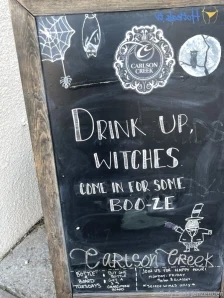 CARLSON
CREEK
DRINK UP,
WITCHES
COME IN FOR SOME
BOO-ZE
Carlson Creek
BOTTLE
BOARD
TUESDAYS
JOIN US FOR HAPPY HOUR!